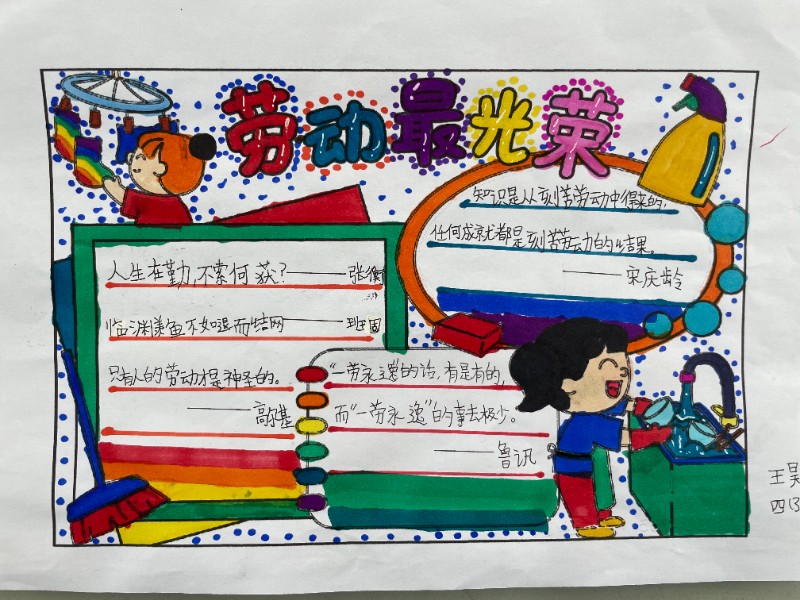 劳动最光荣
知识是从刻苦劳动中得来的,
任何成就都是刻苦劳动的结果。
——宋庆龄
人生在勤,不索何获?——张衡
临渊羡鱼不如退而结网——班固
只有人的劳动才是神圣的。
——高尔基
"一劳永逸"的话,有是有的,
而"一劳永逸"的事去极少。
——鲁讯
王昊
四(3